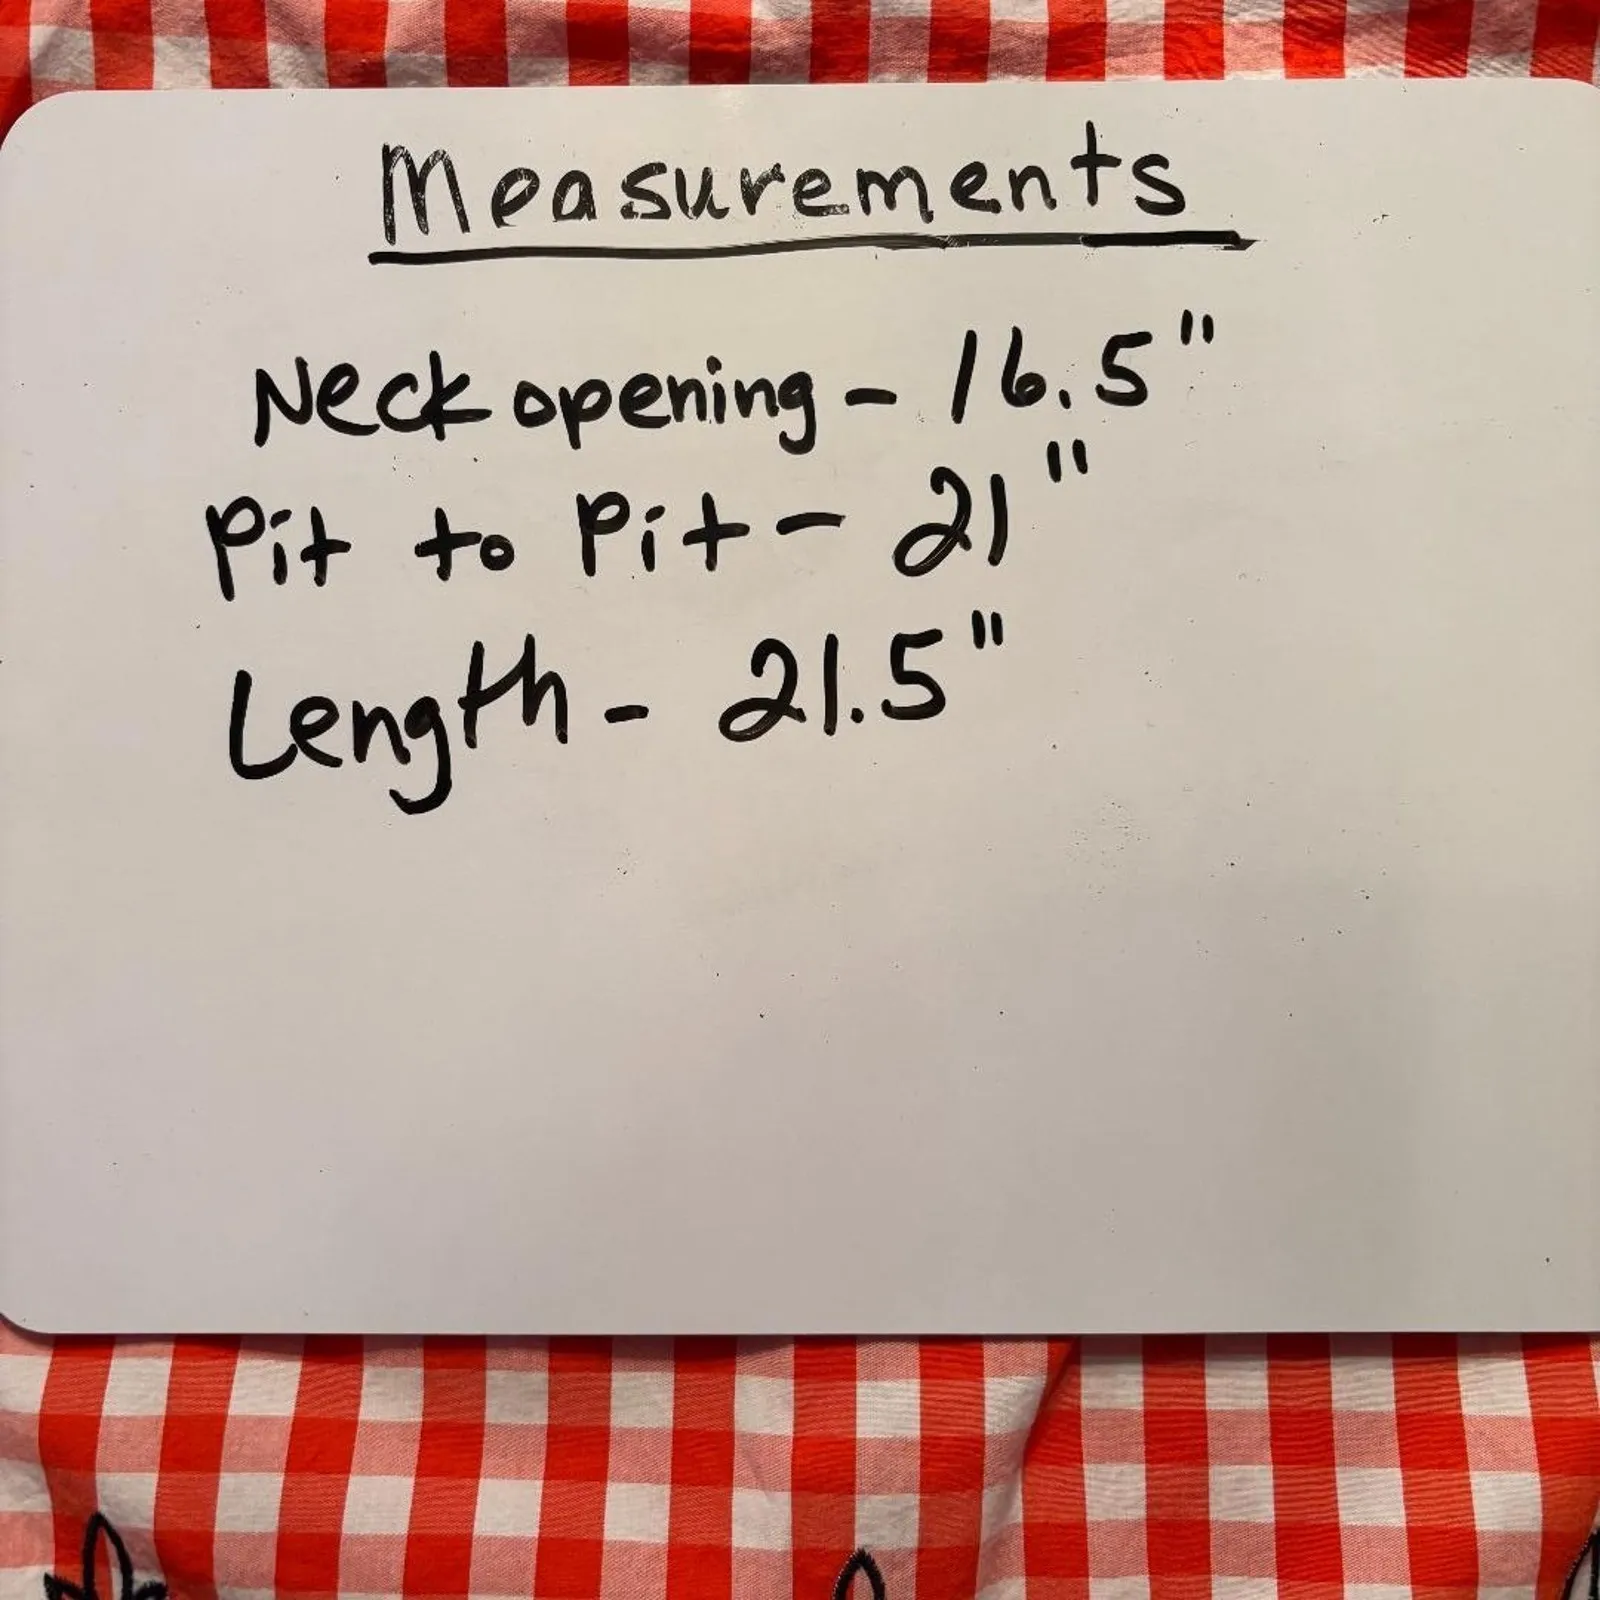 Measurements
Neck opening - 16.5"
Pit to Pit - 21"
Length - 21.5"